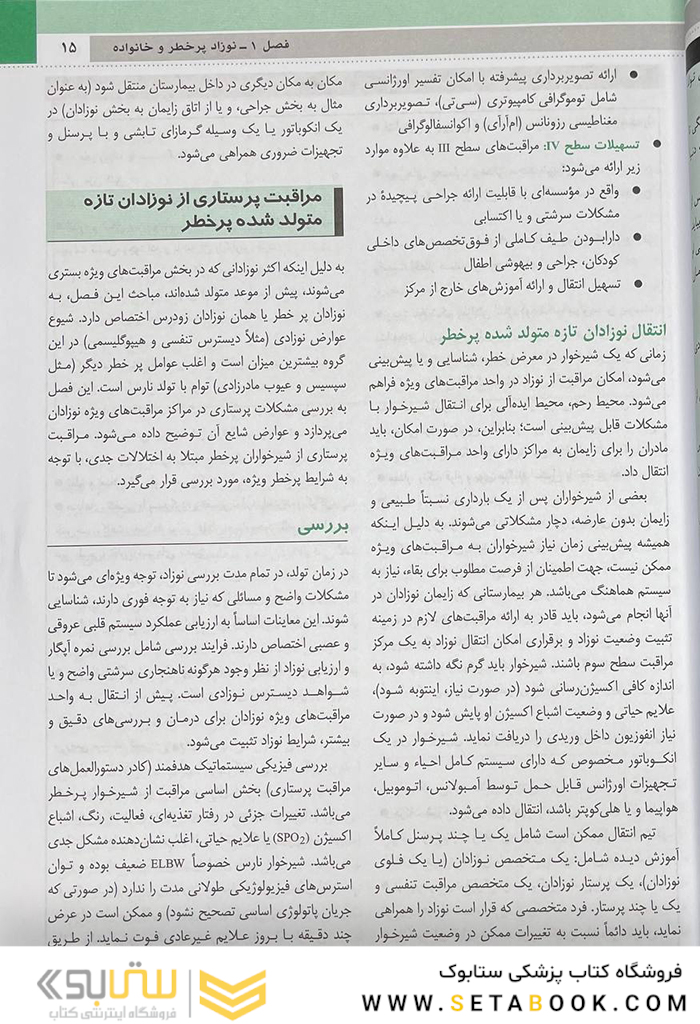 فصل ۱ ـ نوزاد پرخطر و خانواده ۱۵
● ارائه تصویربرداری پیشرفته با امکان تفسیر اورژانسی
شامل توموگرافی کامپیوتری (سی‌تی)، تصویربرداری
مغناطیسی رزونانس (ام‌آرآی) و اکوانسفالوگرافی
● تسهیلات سطح IV: مراقبت‌های سطح III به علاوه موارد
زیر ارائه می‌شود:
● واقع در مؤسسه‌ای با قابلیت ارائه جراحی پیچیدۀ در
مشکلات سرشتی و یا اکتسابی
● دارابودن طیف کاملی از فوق‌تخصص‌های داخلی
کودکان، جراحی و بیهوشی اطفال
● تسهیل انتقال و ارائه آموزش‌های خارج از مرکز
انتقال نوزادان تازه متولد شده پرخطر
زمانی که یک شیرخوار در معرض خطر، شناسایی و یا پیش‌بینی
می‌شود، امکان مراقبت از نوزاد در واحد مراقبت‌های ویژه فراهم
می‌شود. محیط رحم، محیط ایده‌آلی برای انتقال شیرخوار با
مشکلات قابل پیش‌بینی است؛ بنابراین، در صورت امکان، باید
مادران را برای زایمان به مراکز دارای واحد مراقبت‌های ویژه
انتقال داد.
بعضی از شیرخواران پس از یک بارداری نسبتاً طبیعی و
زایمان بدون عارضه، دچار مشکلاتی می‌شوند. به دلیل اینکه
همیشه پیش‌بینی زمان نیاز شیرخواران به مراقبت‌های ویژه
ممکن نیست، جهت اطمینان از فرصت مطلوب برای بقاء، نیاز به
سیستم هماهنگ می‌باشد. هر بیمارستانی که زایمان نوزادان در
آنها انجام می‌شود، باید قادر به ارائه مراقبت‌های لازم در زمینه
تثبیت وضعیت نوزاد و برقراری امکان انتقال نوزاد به یک مرکز
مراقبت سطح سوم باشند. شیرخوار باید گرم نگه داشته شود، به
اندازه کافی اکسیژن‌رسانی شود (در صورت نیاز، اینتوبه شود)،
علایم حیاتی و وضعیت اشباع اکسیژن او پایش شود و در صورت
نیاز انفوزیون داخل وریدی را دریافت نماید. شیرخوار در یک
انکوباتور مخصوص که دارای سیستم کامل احیاء و سایر
تجهیزات اورژانس قابل حمل توسط آمبولانس، اتوموبیل،
هواپیما و یا هلی‌کوپتر باشد، انتقال داده می‌شود.
تیم انتقال ممکن است شامل یک یا چند پرسنل کاملاً
آموزش دیده شامل: یک متخصص نوزادان (یا یک فلوی
نوزادان)، یک پرستار نوزادان، یک متخصص مراقبت تنفسی و
یک یا چند پرستار. فرد متخصصی که قرار است نوزاد را همراهی
نماید، باید دائماً نسبت به تغییرات ممکن در وضعیت شیرخوار
مکان به مکان دیگری در داخل بیمارستان منتقل شود (به عنوان
مثال به بخش جراحی، و یا از اتاق زایمان به بخش نوزادان) در
یک انکوباتور یا یک وسیله گرمازای تابشی و با پرسنل و
تجهیزات ضروری همراهی می‌شود.
مراقبت پرستاری از نوزادان تازه
متولد شده پرخطر
به دلیل اینکه اکثر نوزادانی که در بخش مراقبت‌های ویژه بستری
می‌شوند، پیش از موعد متولد شده‌اند، مباحث این فصل، به
نوزادان پر خطر یا همان نوزادان زودرس اختصاص دارد. شیوع
عوارض نوزادی (مثلاً دیسترس تنفسی و هیپوگلیسمی) در این
گروه بیشترین میزان است و اغلب عوامل پر خطر دیگر (مثل
سپسیس و عیوب مادرزادی) توام با تولد نارس است. این فصل
به بررسی مشکلات پرستاری در مراکز مراقبت‌های ویژه نوزادان
می‌پردازد و عوارض شایع آن توضیح داده می‌شود. مراقبت
پرستاری از شیرخواران پرخطر مبتلا به اختلالات جدی، با توجه
به شرایط پرخطر ویژه، مورد بررسی قرار می‌گیرد.
بررسی
در زمان تولد، در تمام مدت بررسی نوزاد، توجه ویژه‌ای می‌شود تا
مشکلات واضح و مسائلی که نیاز به توجه فوری دارند، شناسایی
شوند. این معاینات اساساً به ارزیابی عملکرد سیستم قلبی عروقی
و عصبی اختصاص دارند. فرایند بررسی شامل بررسی نمره آپگار
و ارزیابی نوزاد از نظر وجود هرگونه ناهنجاری سرشتی واضح و یا
شواهد دیسترس نوزادی است. پیش از انتقال به واحد
مراقبت‌های ویژه نوزادان برای درمان و بررسی‌های دقیق و
بیشتر، شرایط نوزاد تثبیت می‌شود.
بررسی فیزیکی سیستماتیک هدفمند (کادر دستورالعمل‌های
مراقبت پرستاری) بخش اساسی مراقبت از شیرخوار پرخطر
می‌باشد. تغییرات جزئی در رفتار تغذیه‌ای، فعالیت، رنگ، اشباع
اکسیژن (SPO2) یا علایم حیاتی، اغلب نشان‌دهنده مشکل جدی
می‌باشد. شیرخوار نارس خصوصاً ELBW ضعیف بوده و توان
استرس‌های فیزیولوژیکی طولانی مدت را ندارد (در صورتی که
جریان پاتولوژی اساسی تصحیح نشود) و ممکن است در عرض
چند دقیقه با بروز علایم غیرعادی فوت نماید. از طریق
فروشگاه کتاب پزشکی ستابوک
WWW.SETABOOK.COM
ستابوک
فروشگاه اینترنتی کتاب